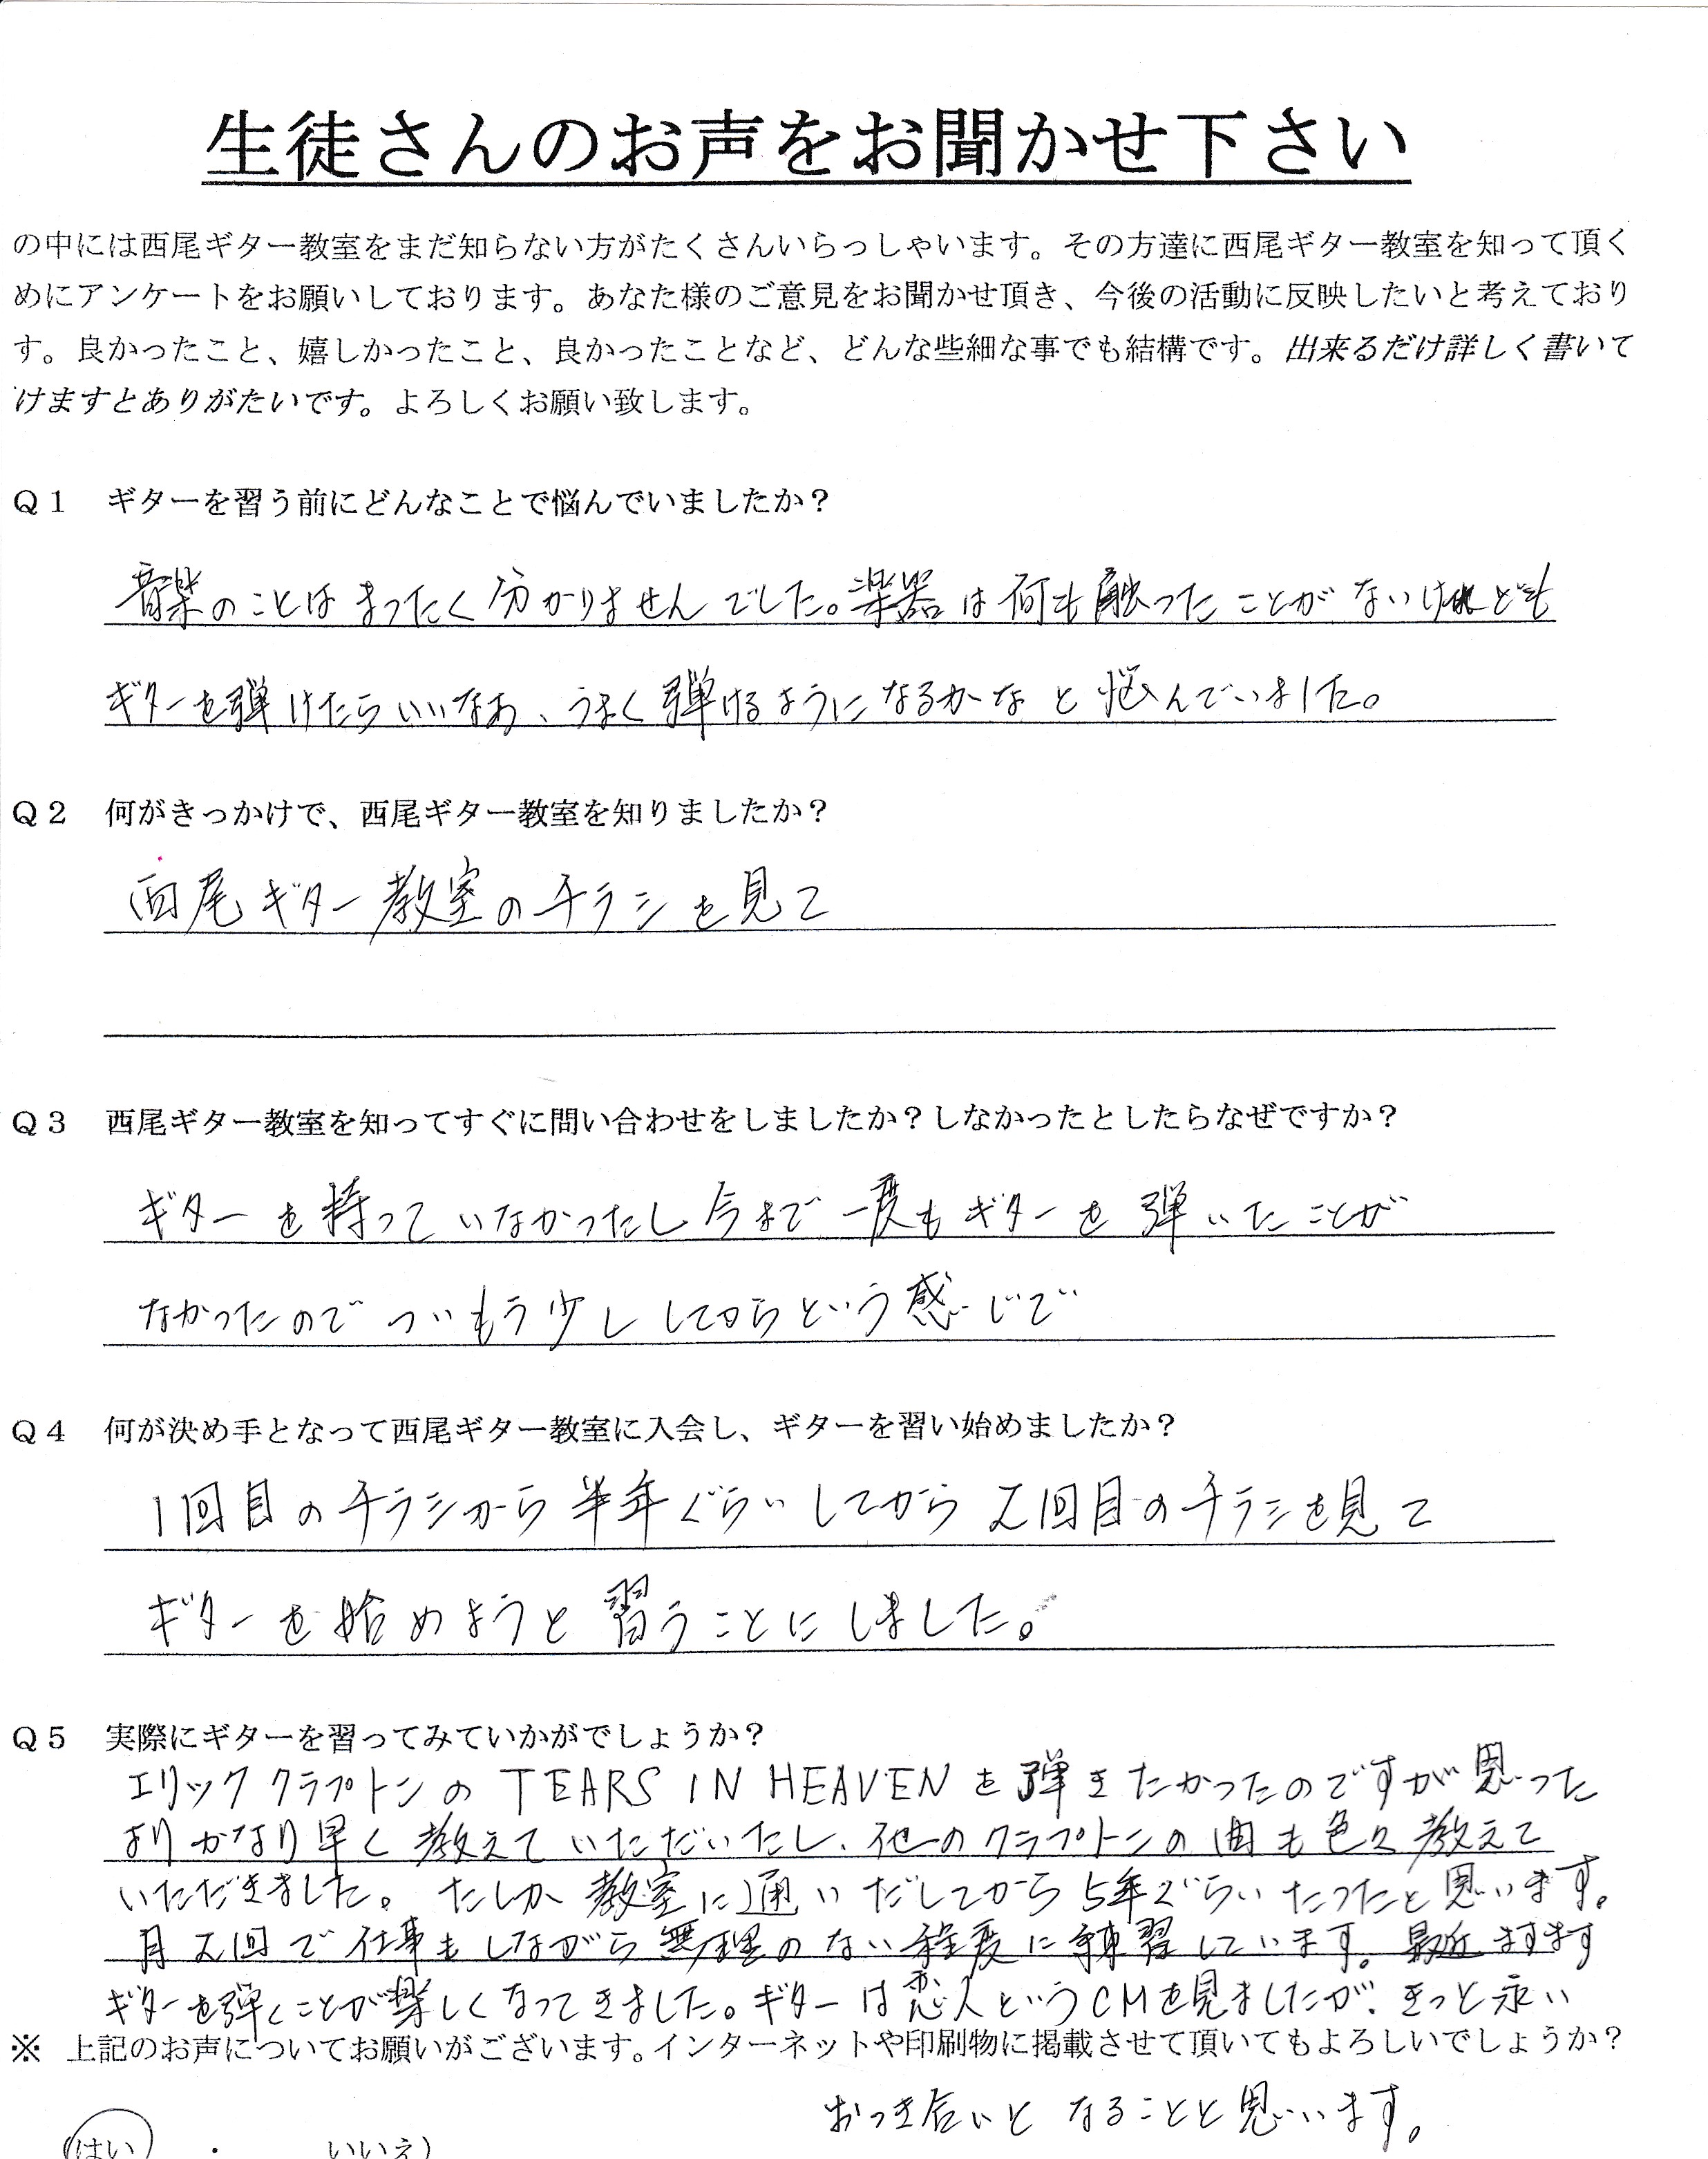 生徒さんのお声をお聞かせ下さい
の中には西尾ギター教室をまだ知らない方がたくさんいらっしゃいます。その方達に西尾ギター教室を知って頂く
めにアンケートをお願いしております。あなた様のご意見をお聞かせ頂き、今後の活動に反映したいと考えており
す。良かったこと、嬉しかったこと、良かったことなど、どんな些細な事でも結構です。出来るだけ詳しく書いて
けますとありがたいです。よろしくお願い致します。
Q1 ギターを習う前にどんなことで悩んでいましたか？
音楽のことはまったく分かりませんでした。楽器は何も触ったことがないけれども
ギターを弾けたらいいなあ、うまく弾けるようになるかなと悩んでいました。
Q2 何がきっかけで、西尾ギター教室を知りましたか？
西尾ギター教室のチラシを見て
Q3 西尾ギター教室を知ってすぐに問い合わせをしましたか？しなかったとしたらなぜですか？
ギターを持っていなかったし今まで一度もギターを弾いたことが
なかったのでついもう少ししてからという感じで
Q4 何が決め手となって西尾ギター教室に入会し、ギターを習い始めましたか？
1回目のチラシから半年ぐらいしてから2回目のチラシを見て
ギターを始めようと習うことにしました。
Q5 実際にギターを習ってみていかがでしょうか？
エリッククラプトンのTEARS IN HEAVENを弾きたかったのですが思った
よりかなり早く教えていただいたし、他のクラプトンの曲も色々教えて
いただきました。たしか教室に通いだしてから5年ぐらいたったと思います。
月2回で仕事もしながら無理のない程度に練習しています。最近ますます
ギターを弾くことが楽しくなってきました。ギターは恋人というCMを見ましたが、きっと永い
※ 上記のお声についてお願いがございます。インターネットや印刷物に掲載させて頂いてもよろしいでしょうか？
おつき合いとなることと思います。
(はい ・ いいえ)